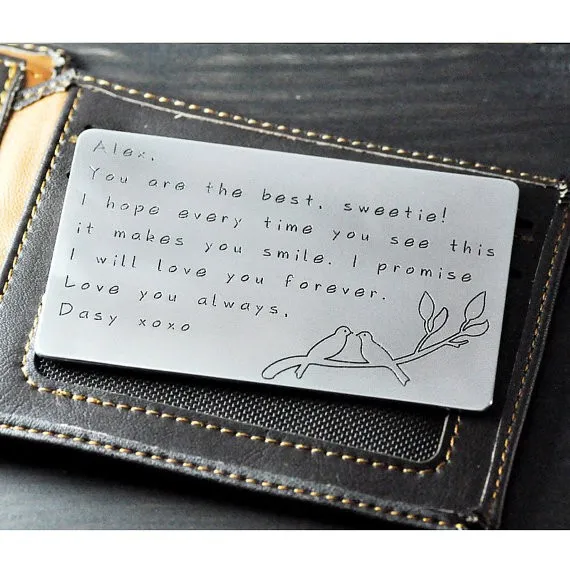 Alex,
You are the best, sweetie!
I hope every time you see this
it makes you smile. I promise
I will love you forever.
Love you always,
Dasy xoxo